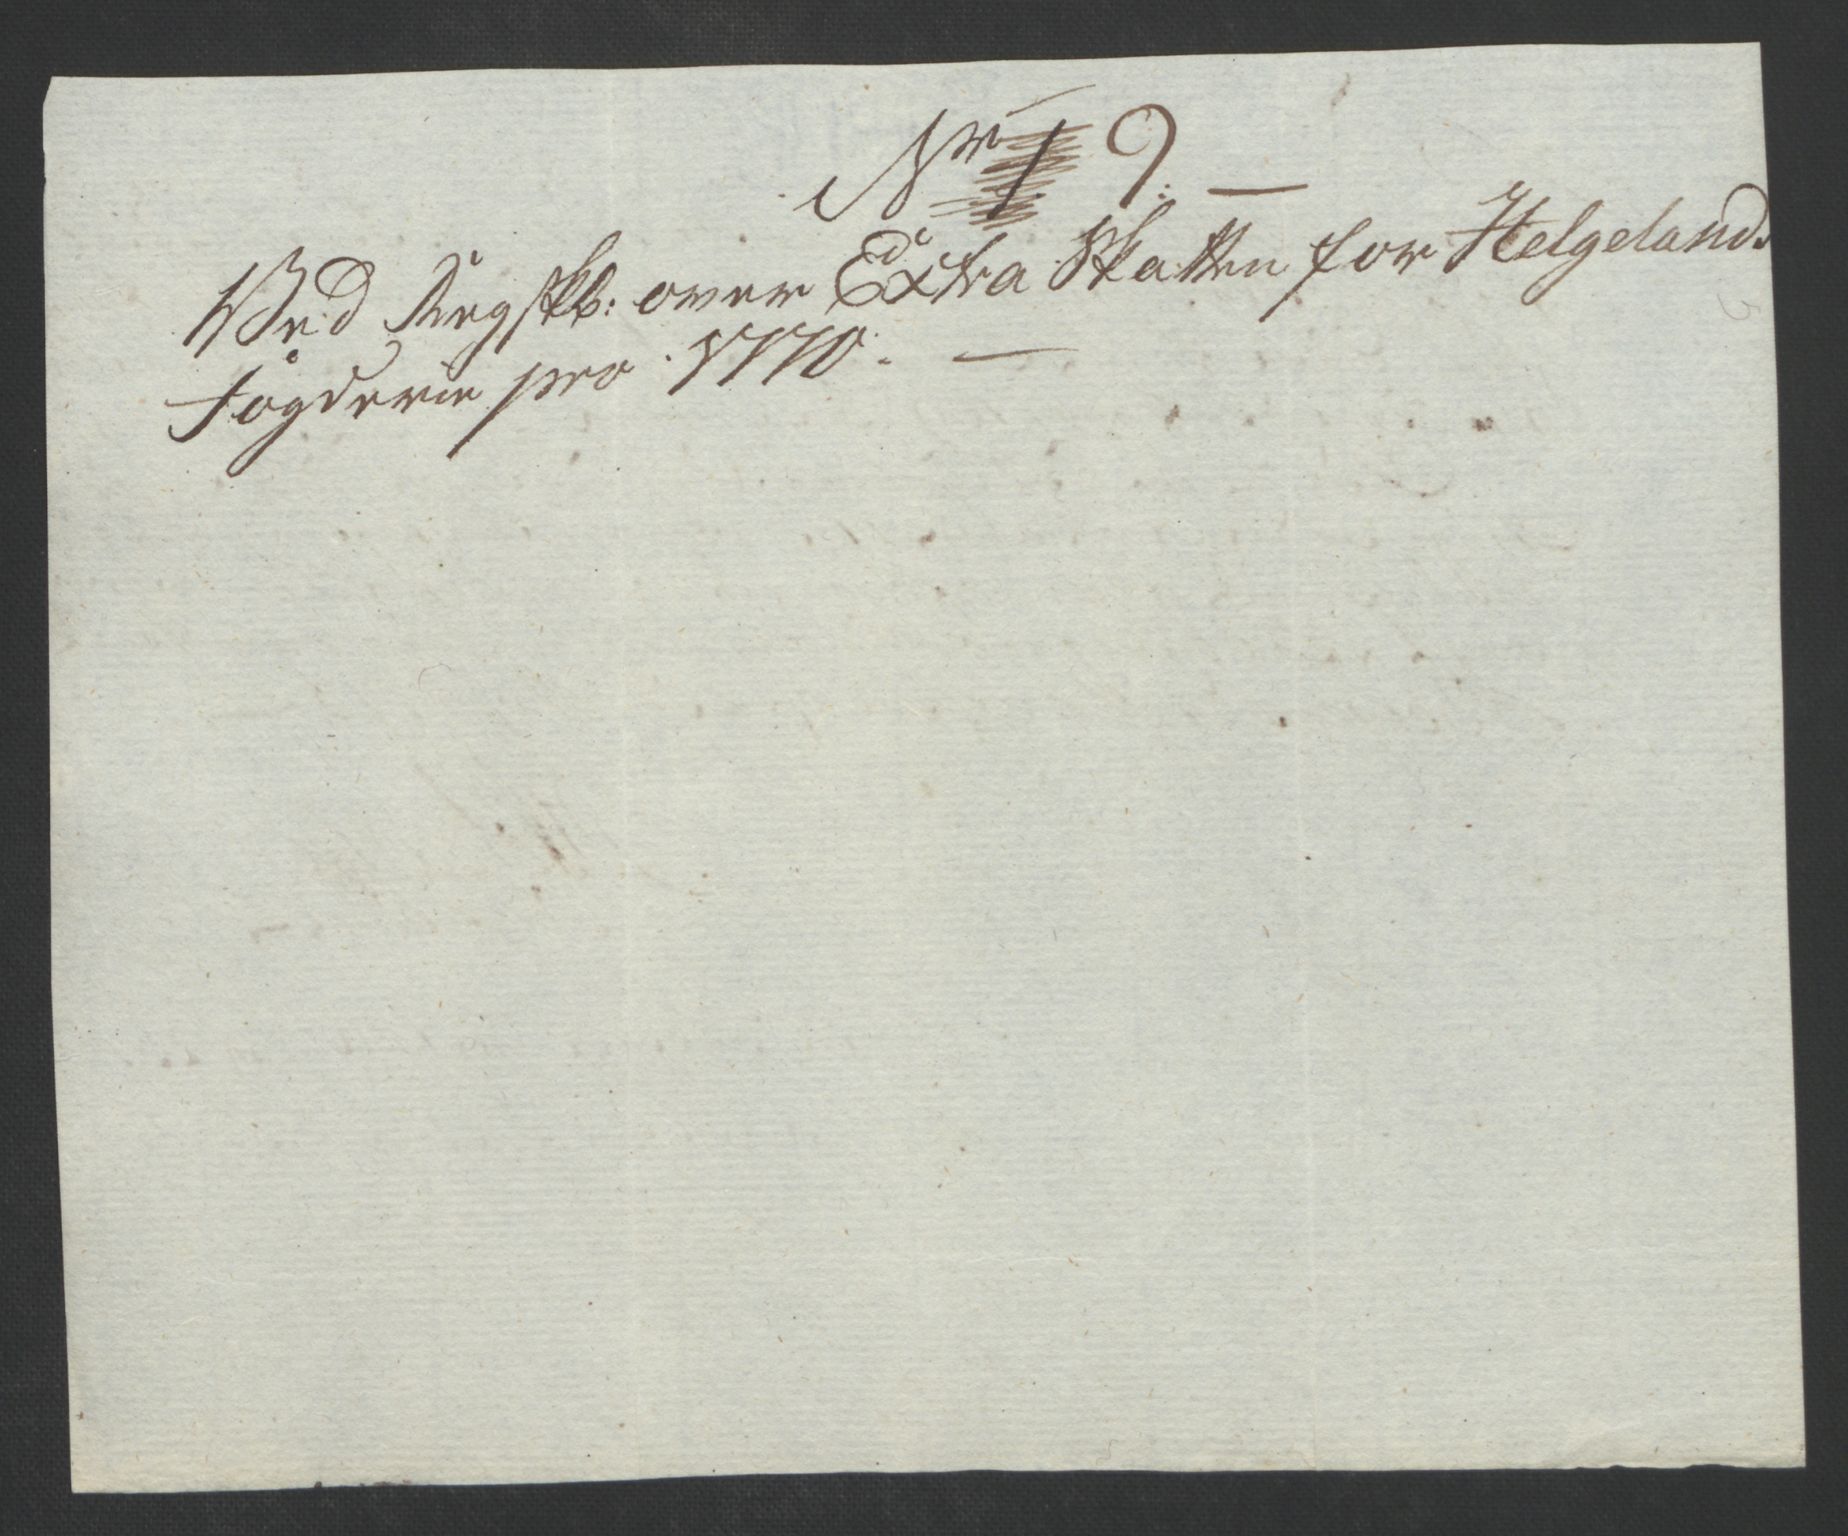 No 9. —
Ved Regskb: over Extra Skatten for Helgelands
fögderie pro 1770. —